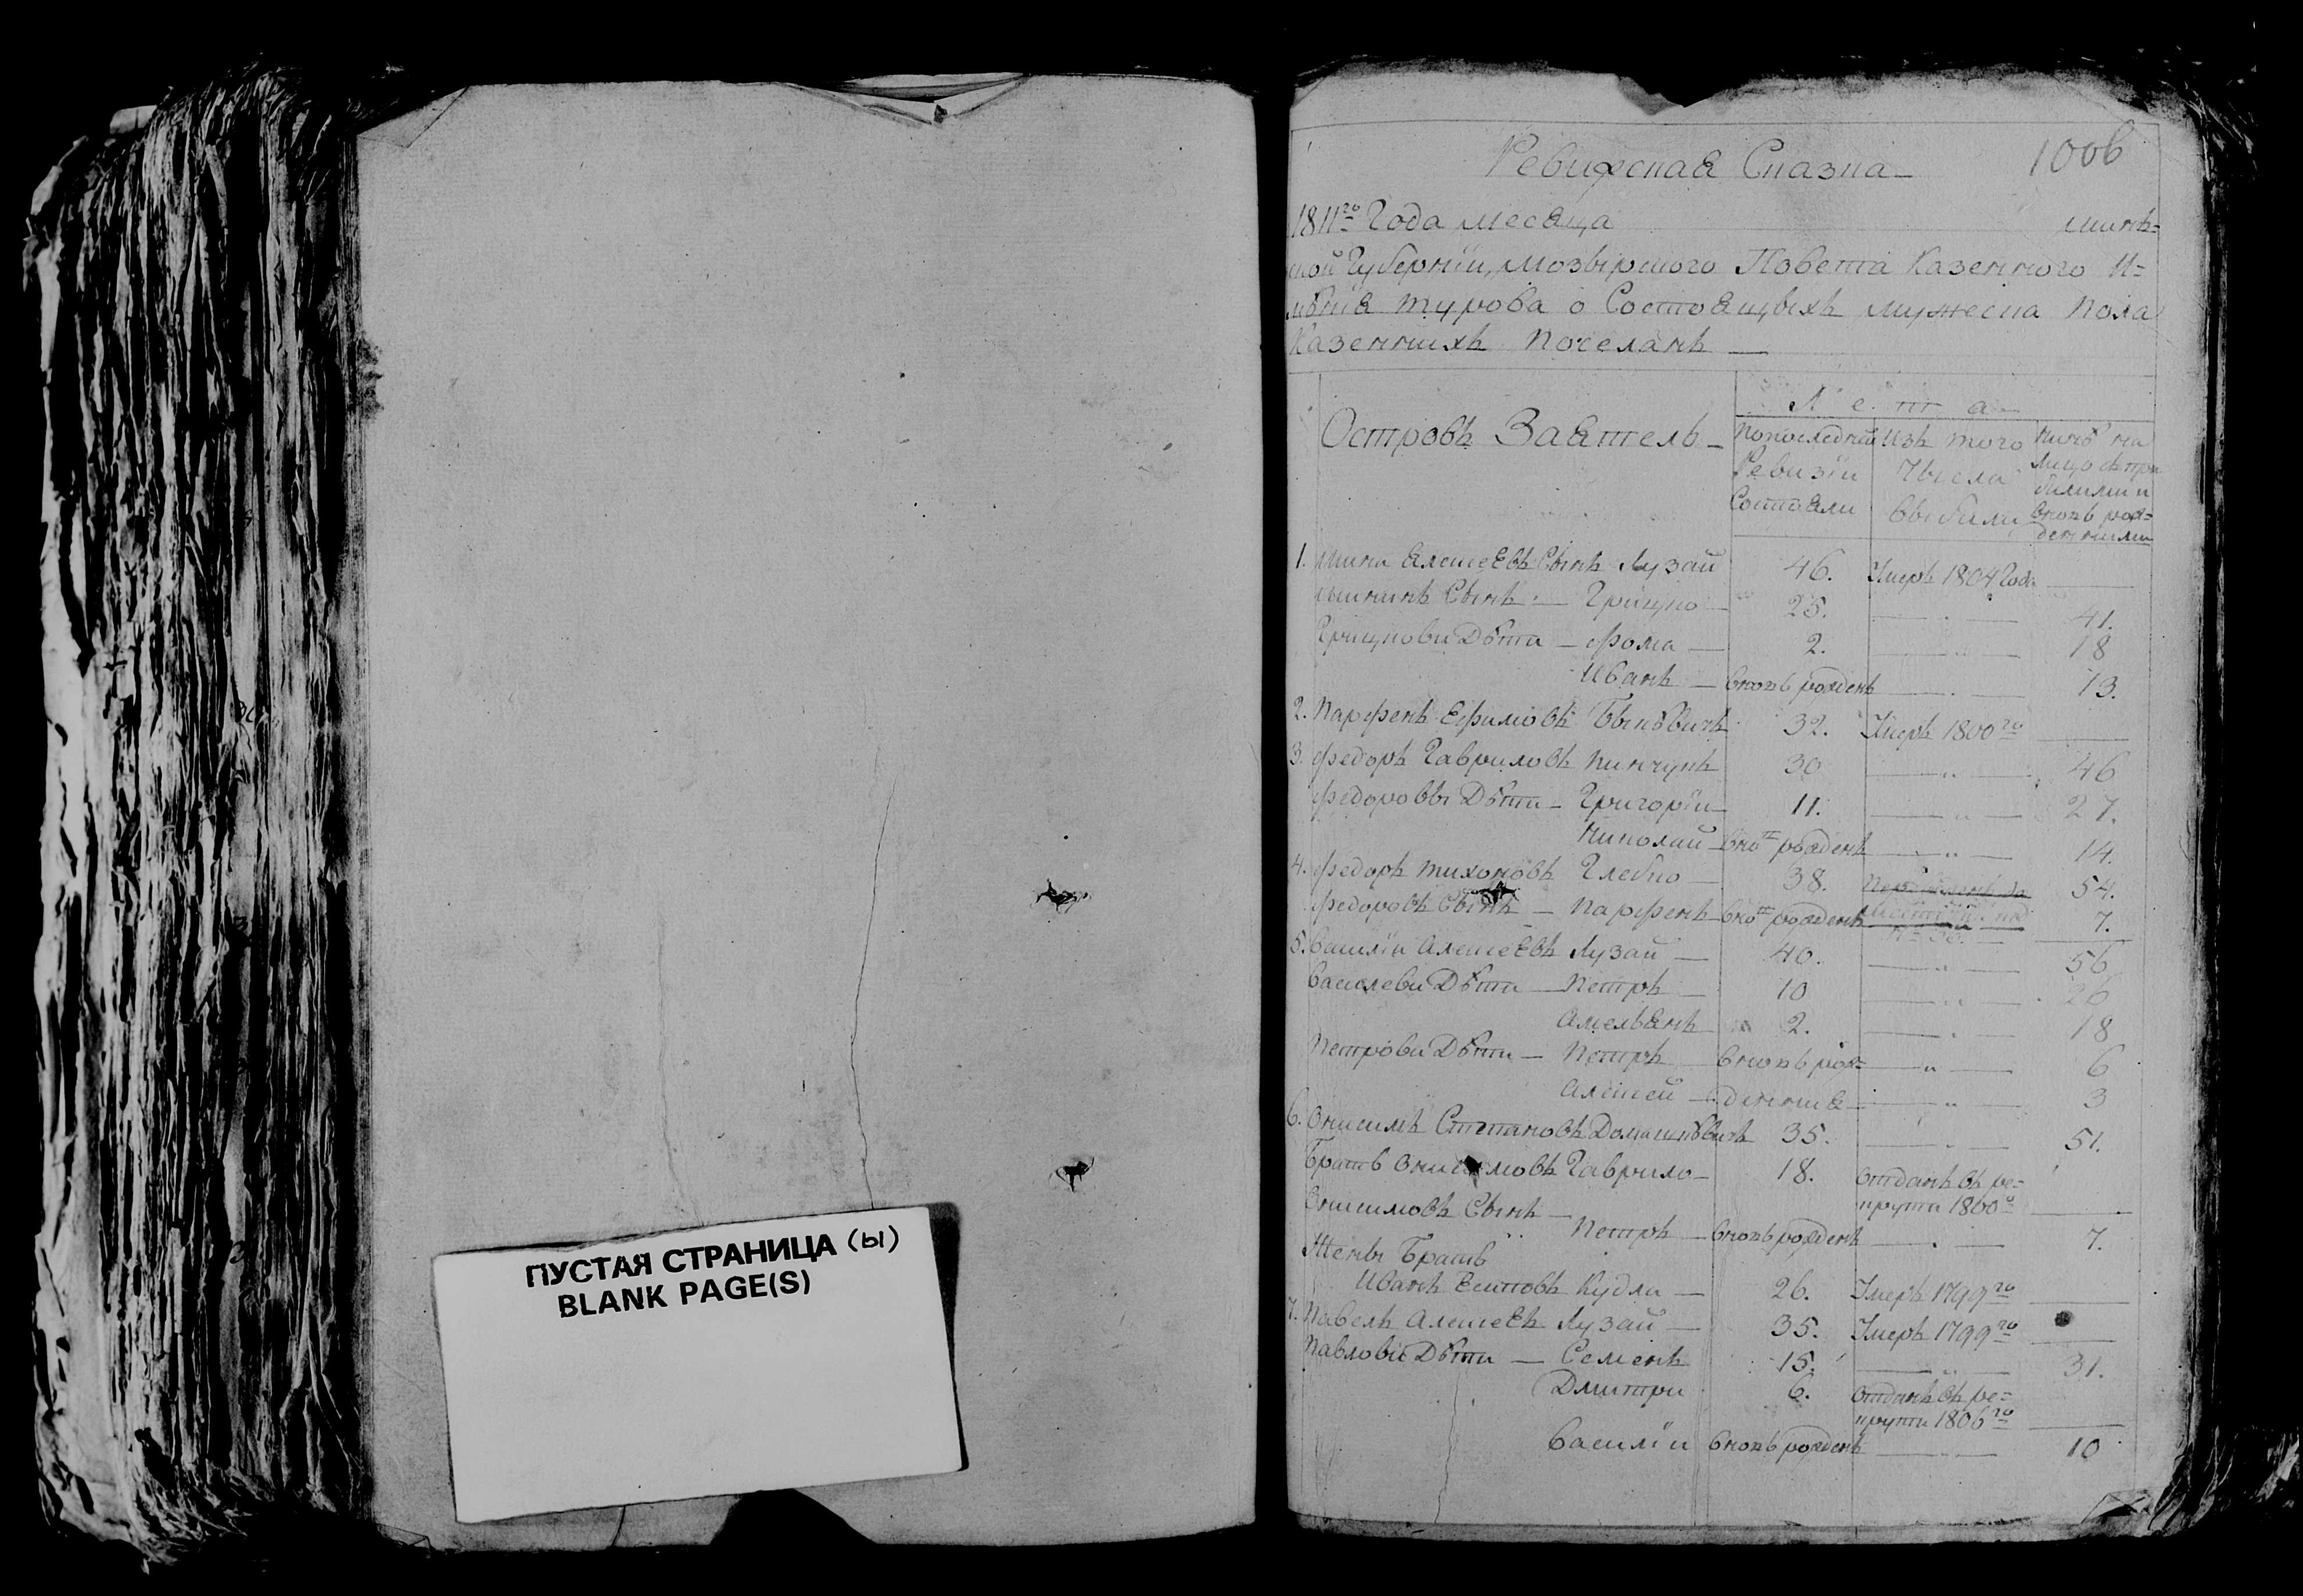 ПУСТАЯ СТРАНИЦА (ы)
BLANK PAGE(S)
1006
Ревижская Сказка
1811го Года месяца минъ=
ской Губернїи, мозырского Повета Казенного И=
мѣнїя турова о Состоящыхъ мужеска пола
Казенныхъ поселанъ
Островъ Заятель
Лета
по последней Ревизїи Состояли
Изъ того Числа выбыли
Нинѣ на лицо съ прибилими и вновь рожденними
1. Мина Алексеевъ Сынъ Лузай 46. Умеръ 1804 Года
Мининъ Сынъ Грицко 25. 41.
Грицкови Дѣти Фома 2. 18
Иванъ вновь рожденъ 13.
2. Парфенъ Ефимовъ 32. Умеръ 1800го
3. Федоръ Гавриловъ Пинчукъ 30 46
Федоровы Дѣти Григорїи 11. 27.
Николай вно рожденъ 14.
4. Федоръ тихоновъ Глебко 38. 54.
Федоровъ Сынъ Парфенъ вно рожденъ 7.
5. Василїи Алексеевъ Лузай 40. 56
Василеви Дѣти Петръ 10 26
Амельянъ 2. 18
Петрови Дѣти Петръ вновь рож= 6
Алексей денние 3
6. Онисимъ Степановъ Домашкѣвичъ 35. 51.
Братъ Онисимовъ Гаврило 18. отданъ въ ре=
крути 1800о
Онисимовъ Сынъ
Петръ вновь рожденъ 7.
Жены Братъ
Иванъ Есиповъ Кудла 26. Умеръ 1799го
7. Павелъ Алексеевъ Лузай 35. Умеръ 1799го
Павлови Дѣти Семенъ 15. 31.
Дмитри 6. отданъ въ ре=
крути 1806го
Василїи вновь рожденъ 10